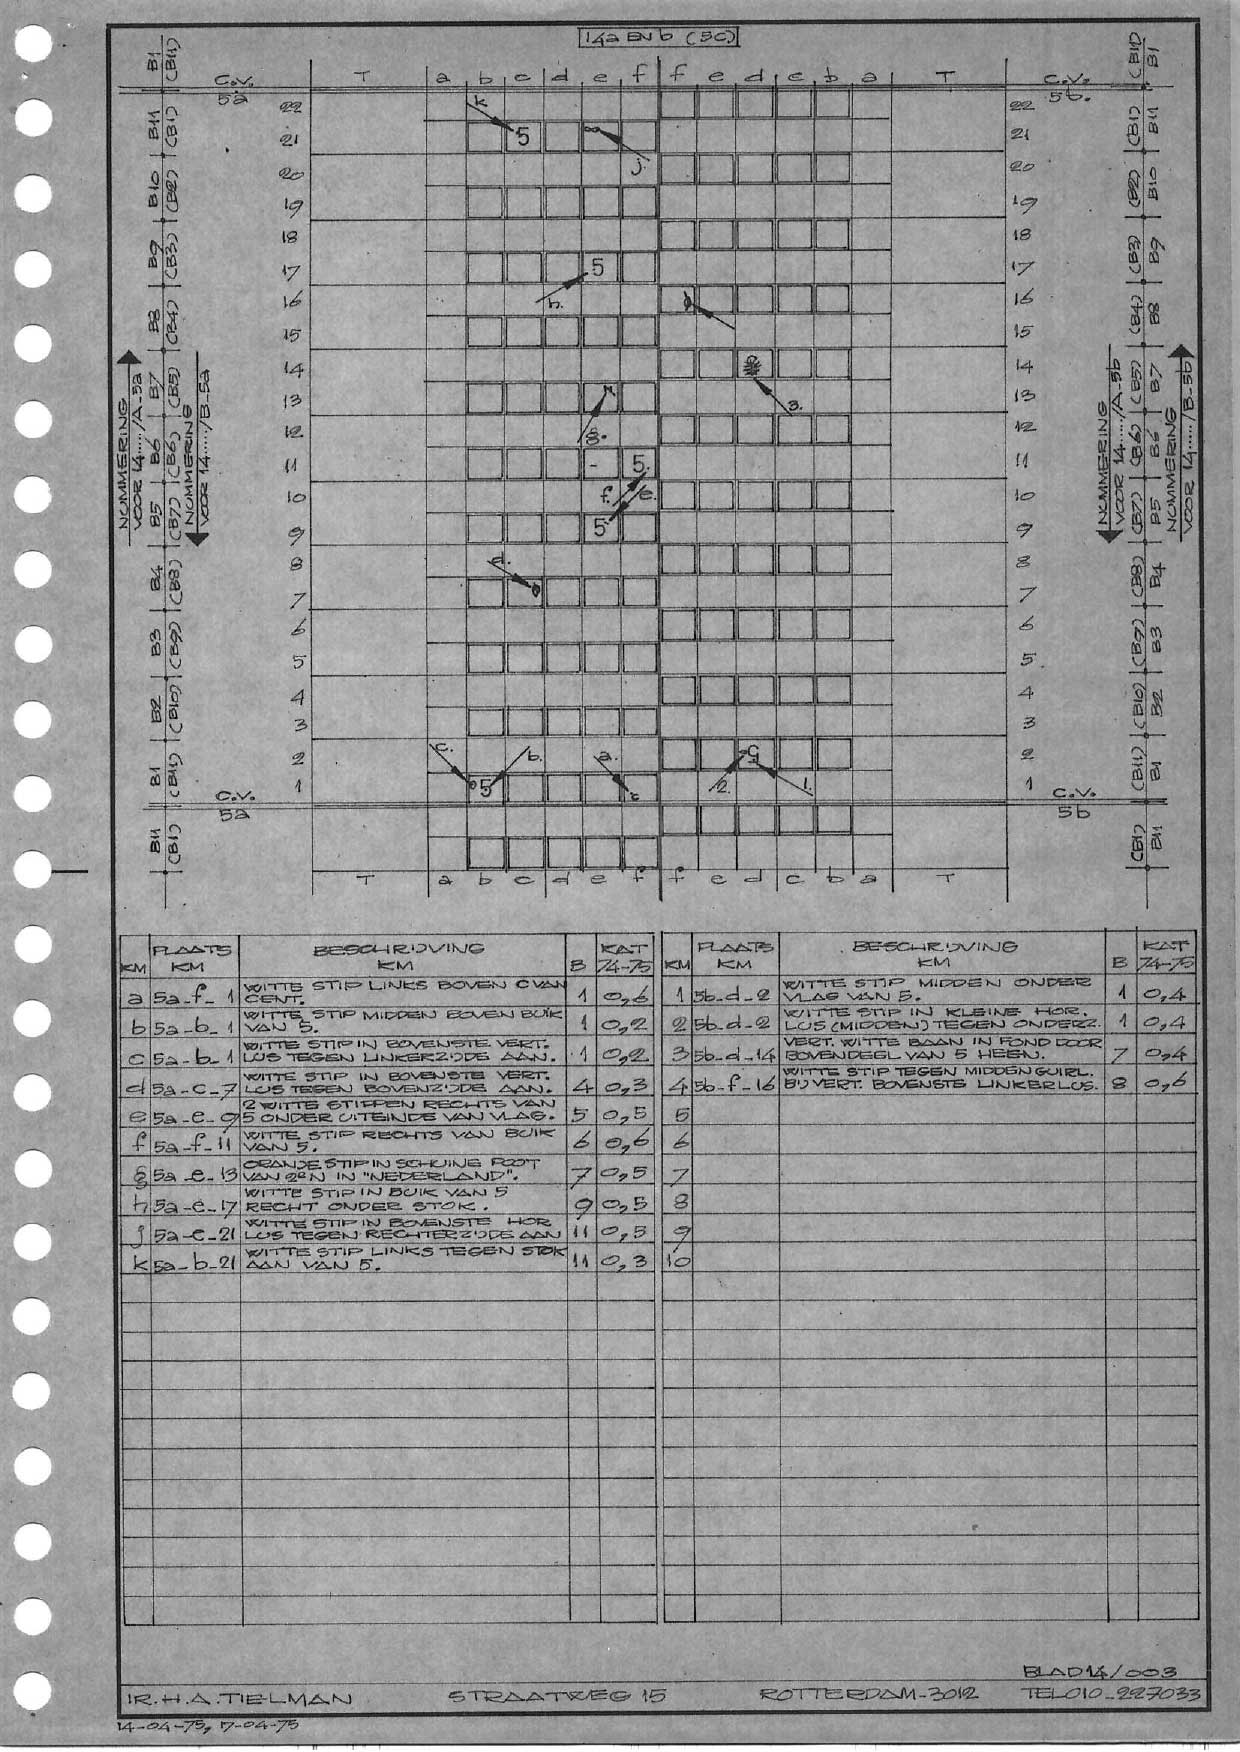 14a EN b (5C)
T a b c d e f f e d c b a T
C.V. C.V.
5a 5b.
22 22
21 21
20 20
19 19
18 18
17 17
16 16
15 15
14 14
13 13
12 12
11 11
10 10
9 9
8 8
7 7
6 6
5 5
4 4
3 3
2 2
1 1
C.V. C.V.
5a 5b
B1 B11 B10 B9 B8 B7 B6 B5 B4 B3 B2 B1 B11
(B11) (B1) (B2) (B3) (B4) (B5) (B6) (B7) (B8) (B9) (B10) (B11) (B1)
NUMMERING
VOOR 14...../A-5a
NUMMERING
VOOR 14...../B-5a
(B11) (B1) (B2) (B3) (B4) (B5) (B6) (B7) (B8) (B9) (B10) (B11) (B1)
B1 B11 B10 B9 B8 B7 B6 B5 B4 B3 B2 B1 B11
NUMMERING
VOOR 14...../A-5b
NUMMERING
VOOR 14...../B-5b
k
5
j.
5
h.
3.
g.
5.
f. e.
5
d.
c. b. a.
5
5
2. 1.
T a b c d e f f e d c b a T
KM PLAATS KM BESCHRIJVING KM B KAT 74-75
a 5a-f-1 WITTE STIP LINKS BOVEN C VAN
CENT. 1 0,6
b 5a-b-1 WITTE STIP MIDDEN BOVEN BUIK
VAN 5. 1 0,2
c 5a-b-1 WITTE STIP IN BOVENSTE VERT.
LUS TEGEN LINKERZIJDE AAN. 1 0,2
d 5a-c-7 WITTE STIP IN BOVENSTE VERT.
LUS TEGEN BOVENZIJDE AAN. 4 0,3
e 5a-e-9 2 WITTE STIPPEN RECHTS VAN
5 ONDER UITEINDE VAN VLAG. 5 0,5
f 5a-f-11 WITTE STIP RECHTS VAN BUIK
VAN 5. 6 0,6
g 5a-e-13 ORANJE STIP IN SCHUINE POOT
VAN 2e N IN "NEDERLAND". 7 0,5
h 5a-e-17 WITTE STIP IN BUIK VAN 5
RECHT ONDER STOK. 9 0,5
j 5a-e-21 WITTE STIP IN BOVENSTE HOR
LUS TEGEN RECHTERZIJDE AAN 11 0,5
k 5a-b-21 WITTE STIP LINKS TEGEN STOK
AAN VAN 5. 11 0,3
KM PLAATS KM BESCHRIJVING KM B KAT 74-75
1 5b-d-2 WITTE STIP MIDDEN ONDER
VLAG VAN 5. 1 0,4
2 5b-d-2 WITTE STIP IN KLEINE HOR.
LUS (MIDDEN) TEGEN ONDERZ. 1 0,4
3 5b-d-14 VERT. WITTE BAAN IN FOND DOOR
BOVENDEEL VAN 5 HEEN. 7 0,4
4 5b-f-16 WITTE STIP TEGEN MIDDEN GUIRL.
BIJ VERT. BOVENSTE LINKERLUS. 8 0,6
5
6
7
8
9
10
BLAD 14/003
IR. H.A. TIELMAN STRAATWEG 15 ROTTERDAM-3012 TEL 010-227033
14-04-75, 17-04-75